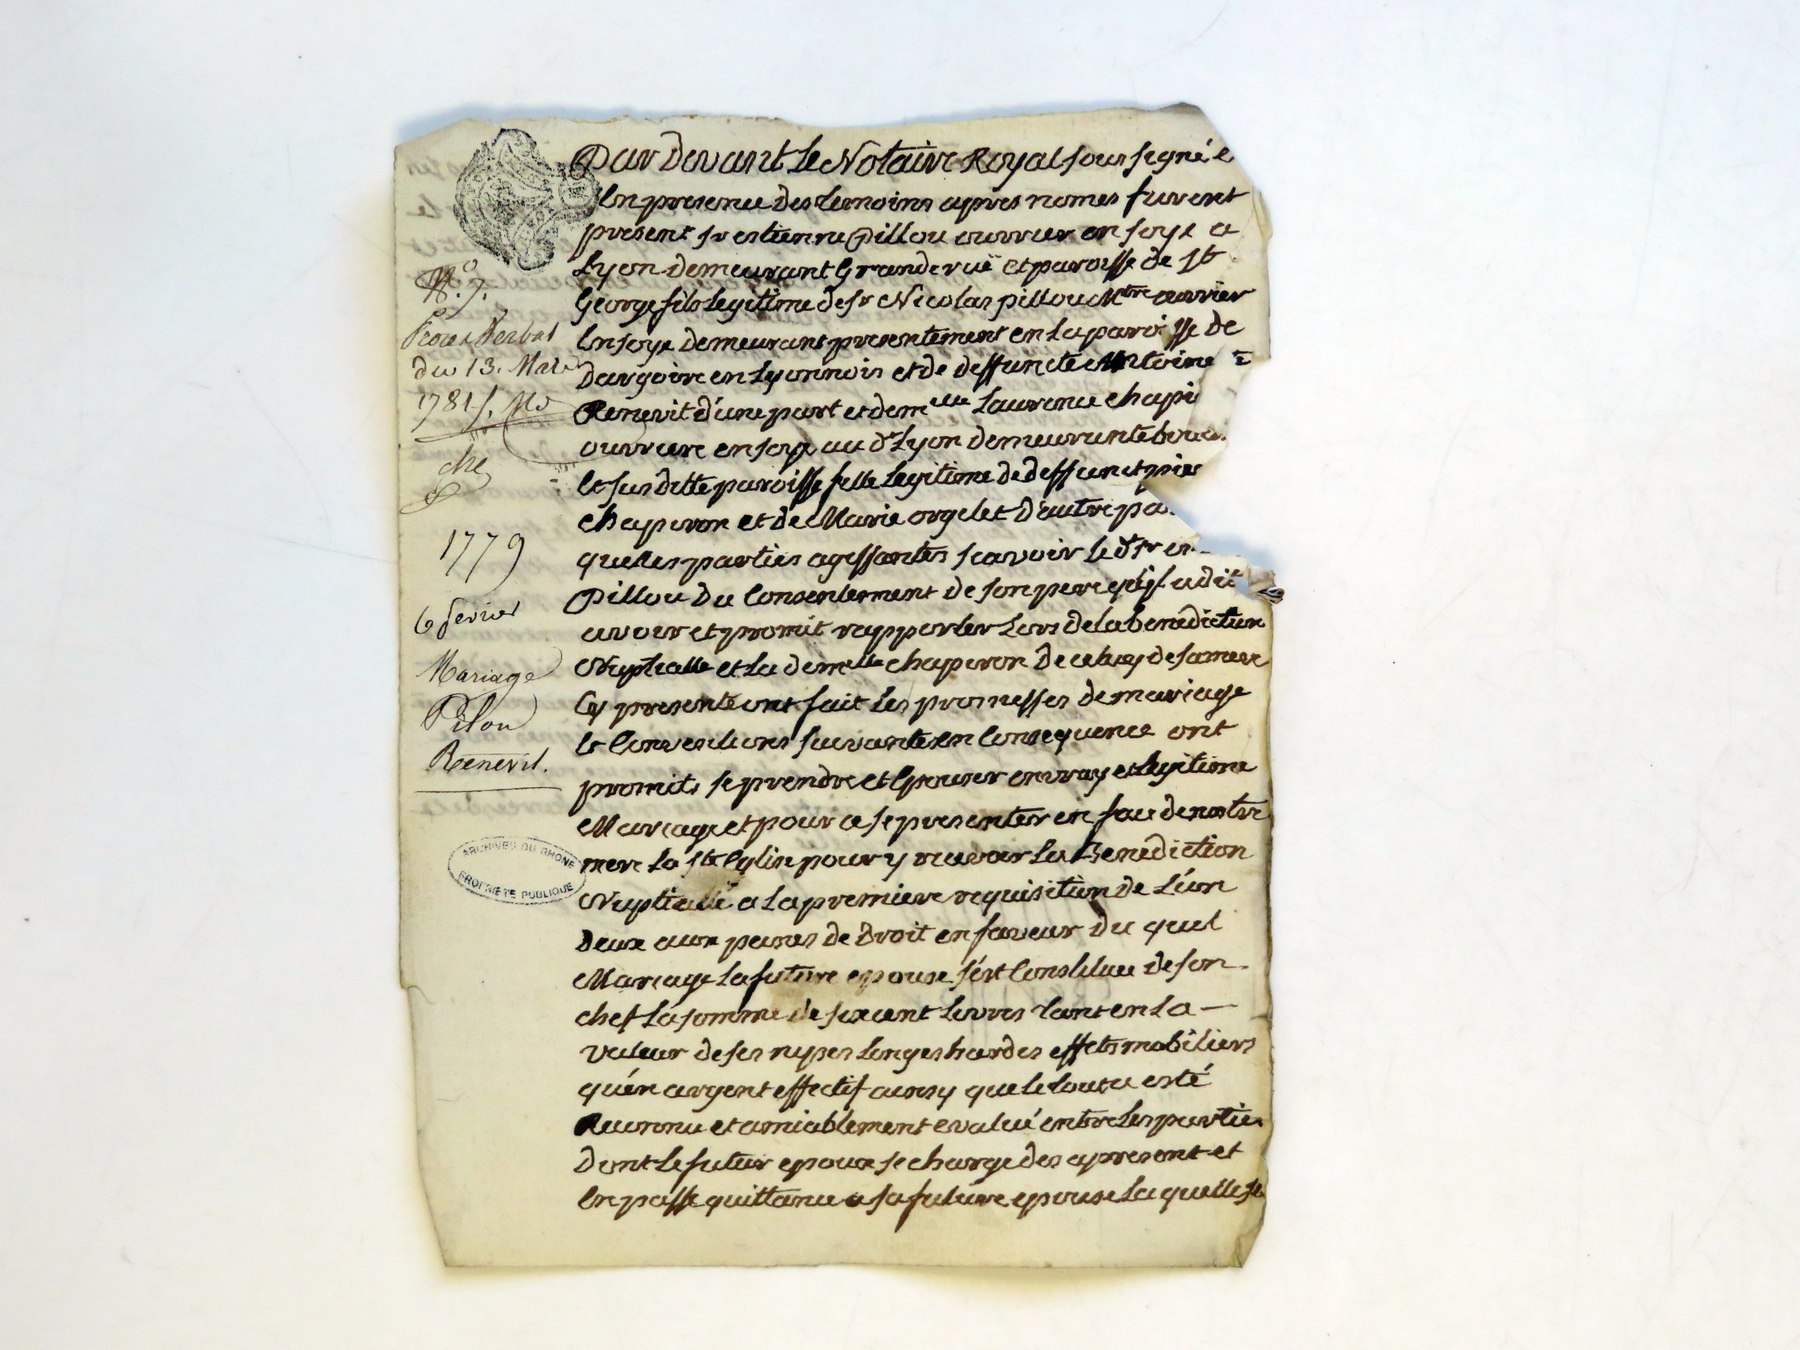 Par devant le Notaire Royal soussigné e
En presence des temoins apres nomes furent
present sr estienne Pillou ouvrier en soye a
Lyon demeurant Grande ruë et paroisse de St
George fils legitime de sr Nicolas pillou Mtre ouvrier
En soye demeurant presentement en la paroisse de
Dargoire en Lyonnois et de deffuncte Antoine
Renevit d'une part et demelle Laurence chape
ouvriere en soye au dt Lyon demeurante
et susditte paroisse fille legitime de deffunct pier
chaperon et de Marie orgelet d'autre pa
quelles parties agissantes scavoir le dt sr
Pillou du Consentement de son pere qu'il a dit
avoir et promit rapporter Lors de la benediction
Nuptialle et la demelle chaperon de celuy de sa mere
Cy presente ont fait les promesses de mariage
et Conventions suivantes en Consequence ont
promits se prendre et Epouser en vray et legitime
Mariage et pour ce se presenter en face de nostre
mere la ste Eglise pour y recevoir La Benediction
Nuptialle a la premiere requisition de L'un
deux aux peines de Droit en faveur du quel
Mariage la future epouse s'est Constituee de son
chef La somme de six cent Livres tant en La
valeur de ses nipes linges hardes effets mobiliers
qu'en argent effectif ainsy que le tout a esté
Reconnu et amiablement evalué entre les parties
Dont le futur epoux se charge des apresent et
En passe quittance a sa future epouse La quelle se
No. 7.
Proces Verbal
du 13. Mars
1781
1779
6 fevrier
Mariage
Pilou
Renevit.
ARCHIVES DU RHONE
PROPRIETE PUBLIQUE